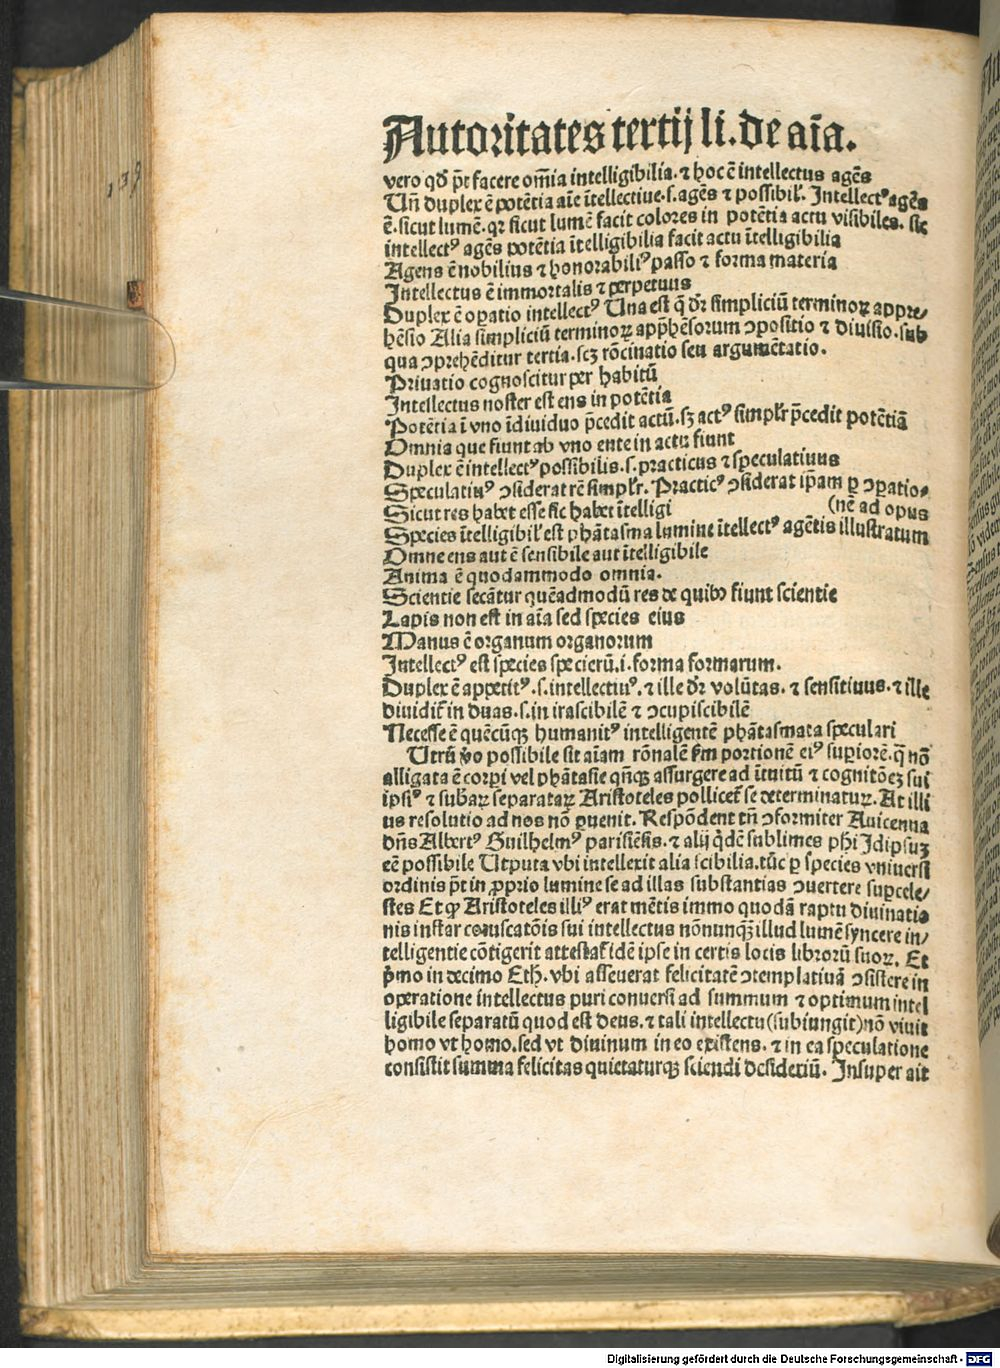 Autoritates tertij li. de aĩa.
139
vero qd̕ pt̄ facere om̄ia intelligibilia. ⁊ hoc ē intellectus agēs
Un̄ duplex ē potētia aīe ītellectiue. s. agēs ⁊ possibil̕. Intellectꝰ agēs
ē. sicut lumē. qꝛ sicut lumē facit colores in potētia actu visibiles. sic
intellectꝰ agēs potētia ītelligibilia facit actu ītelligibilia
Agens ē nobilius ⁊ honorabiliꝰ passo ⁊ forma materia
Intellectus ē immortalis ⁊ perpetuus
Duplex ē oꝑatio intellectꝰ Una est q̄ dr̄ simpliciū terminoꝝ appre⸗
hēsio Alia simpliciū terminoꝝ app̄hēsorum ↄpositio ⁊ diuisio. sub
qua ↄprehēditur tertia. scꝫ rōcinatio seu argumētatio.
Priuatio cognoscitur per habitū
Intellectus noster est ens in potētia
Potētia ī vno īdiuiduo p̄cedit actū. sꝫ actꝰ simpl̕r p̄cedit potētiā
Omnia que fiunt ab vno ente in actu fiunt
Duplex ē intellectꝰ possibilis. s. practicus ⁊ speculatiuus
Speculatiuꝰ ↄsiderat rē simpl̕r. Practicꝰ ↄsiderat ip̄am ꝑ ↄꝑatio⸗
Sicut res habet esse sic habet ītelligi (nē ad opus
Species ītelligibil̕ est phātasma lumine ītellectꝰ agētis illustratum
Omne ens aut ē sensibile aut ītelligibile
Anima ē quodammodo omnia.
Scientie secātur quēadmodū res de quibꝰ fiunt scientie
Lapis non est in aīa sed species eius
Manus ē organum organorum
Intellectꝰ est species specierū. i. forma formarum.
Duplex ē appetitꝰ. s. intellectiuꝰ. ⁊ ille dr̄ volūtas. ⁊ sensitiuus. ⁊ ille
diuidit̄ in duas. s. in irascibilē ⁊ ↄcupiscibilē
Necesse ē quēcūqꝫ humanitꝰ intelligentē phātasmata speculari
Utrū v̄o possibile sit aīam rōnalē ẜm portionē eiꝰ suꝑiorē. q̄ nō
alligata ē corꝑi vel phātasie qn̄qꝫ assurgere ad ītuitū ⁊ cognitōeꝫ sui
ipsiꝰ ⁊ sub̄aꝝ separataꝝ Aristoteles pollicet̄ se determinatuꝝ. At illi
us resolutio ad nos nō ꝑuenit. Respōdent tn̄ ↄformiter Auicenna
dn̄s Albertꝰ Guilhelmꝰ parisiēsis. ⁊ alij q̇dē sublimes phi̅ Idipsuꝫ
eē possibile Utputa vbi intellexit alia scibilia. tūc ꝑ species vniuersi
ordinis pt̄ in ꝓprio lumine se ad illas substantias ↄuertere suꝑcele⸗
stes Et ꝙ Aristoteles illiꝰ erat mētis immo quodā raptu diuinatio
nis instar coruscatōis sui intellectus nōnunqꝫ illud lumē syncere in⸗
telligentie cōtigerit attestat̄ idē ipse in certis locis librorū suoꝝ. Et
p̄mo in decimo Eth. vbi asseuerat felicitatē ↄtemplatiuā ↄsistere in
operatione intellectus puri conuersi ad summum ⁊ optimum intel
ligibile separatū quod est deus. ⁊ tali intellectu (subiungit) nō viuit
homo vt homo. sed vt diuinum in eo existens. ⁊ in ea speculatione
consistit summa felicitas quietaturqꝫ sciendi desideriū. Insuper ait
Digitalisierung gefördert durch die Deutsche Forschungsgemeinschaft - DFG